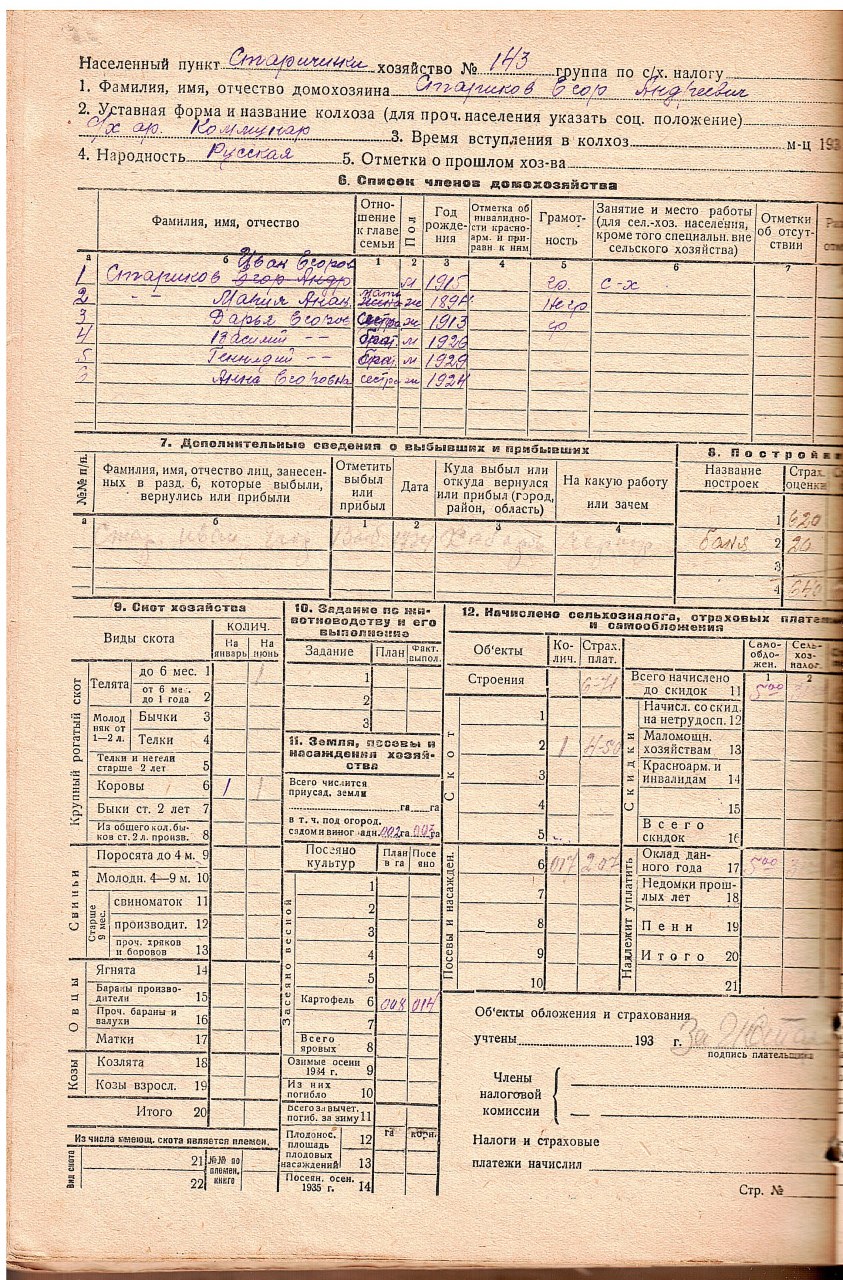 Населенный пункт Старички хозяйство № 143 группа по с/х. налогу
1. Фамилия, имя, отчество домохозяина Стариков Егор Андреевич
2. Уставная форма и название колхоза (для проч. населения указать соц. положение)
с/х ар. Коммунар 3. Время вступления в колхоз м-ц 193
4. Народность Русская 5. Отметки о прошлом хоз-ва
6. Список членов домохозяйства
Фамилия, имя, отчество Отношение к главе семьи Пол Год рождения Отметка об инвалидности красноарм. и приравн к ним Грамотность Занятие и место работы (для сел.-хоз. населения, кроме того специальн. вне сельского хозяйства) Отметки об отсутствии
а б 1 2 3 4 5 6 7
Иван Егоров
1 Стариков Егор Андр м 1915 гр. с-х
2 -"- Мария мать жена ж 1894 негр
3 Дарья Егоров сестра ж 1913 гр
4 Василий -"- брат м 1926
5 Геннадий -"- брат м 1929
6 Анна Егоровна сестра ж 1924
7. Дополнительные сведения о выбывших и прибывших
8. Постройки
№№ п/п. Фамилия, имя, отчество лиц, занесенных в разд. 6, которые выбыли, вернулись или прибыли Отметить выбыл или прибыл Дата Куда выбыл или откуда вернулся или прибыл (город, район, область) На какую работу или зачем
Название построек Страх. оценки
а б 1 2 3 4
1 620
Стар. Иван Егор Выб 1934
баня 2 20
3
4 640
9. Скот хозяйства
Виды скота КОЛИЧ.
На январь На июнь
Крупный рогатый скот
Телята до 6 мес. 1 1
от 6 мес. до 1 года 2
Молодняк от 1—2 л. Бычки 3
Телки 4
Телки и нетели старше 2 лет 5
Коровы 6 1 1
Быки ст. 2 лет 7
Из общего кол. быков ст. 2 л. произв. 8
Свиньи
Поросята до 4 м. 9
Молодн. 4—9 м. 10
Старше 9 мес. свиноматок 11
производит. 12
проч. хряков и боровов 13
Овцы
Ягнята 14
Бараны производители 15
Проч. бараны и валухи 16
Матки 17
Козы
Козлята 18
Козы взросл. 19
Итого 20
Из числа имеющ. скота является племен.
Вид скота 21 №№ по племен. книге
22
10. Задание по животноводству и его выполнение
Задание План Факт. выпол.
1
2
3
11. Земля, посевы и насаждения хозяйства
Всего числится приусад. земли
га га
в т. ч. под огород. садом и виноградн. 002 га 003 га
Посеяно культур План в га Посеяно
Засеяно весной
1
2
3
4
5
Картофель 6 008 014
7
Всего яровых 8
Озимые осени 1934 г. 9
Из них погибло 10
Всего за вычет. погиб. за зиму 11
Плодонос. площадь плодовых насаждений 12 га корн.
13
Посеян. осен. 1935 г. 14
12. Начислено сельхозналога, страховых платежей и самообложения
Об'екты Колич. Страх. плат. Самообложен. Сельхозналог.
1 2
Строения
Скот
1
2 1 4-50
3
4
5
Посевы и насажден.
6 017 2 07
7
8
9
10
Всего начислено до скидок 11 5 00
Скидки
Начисл. со скид. на нетрудосп. 12
Маломощн. хозяйствам 13
Красноарм. и инвалидам 14
15
Всего скидок 16
Надлежит уплатить
Оклад данного года 17 5 00
Недомки прошлых лет 18
Пени 19
Итого 20
21
Об'екты обложения и страхования
учтены 193 г. За
подпись плательщика
Члены налоговой комиссии
Налоги и страховые
платежи начислил
Стр. №